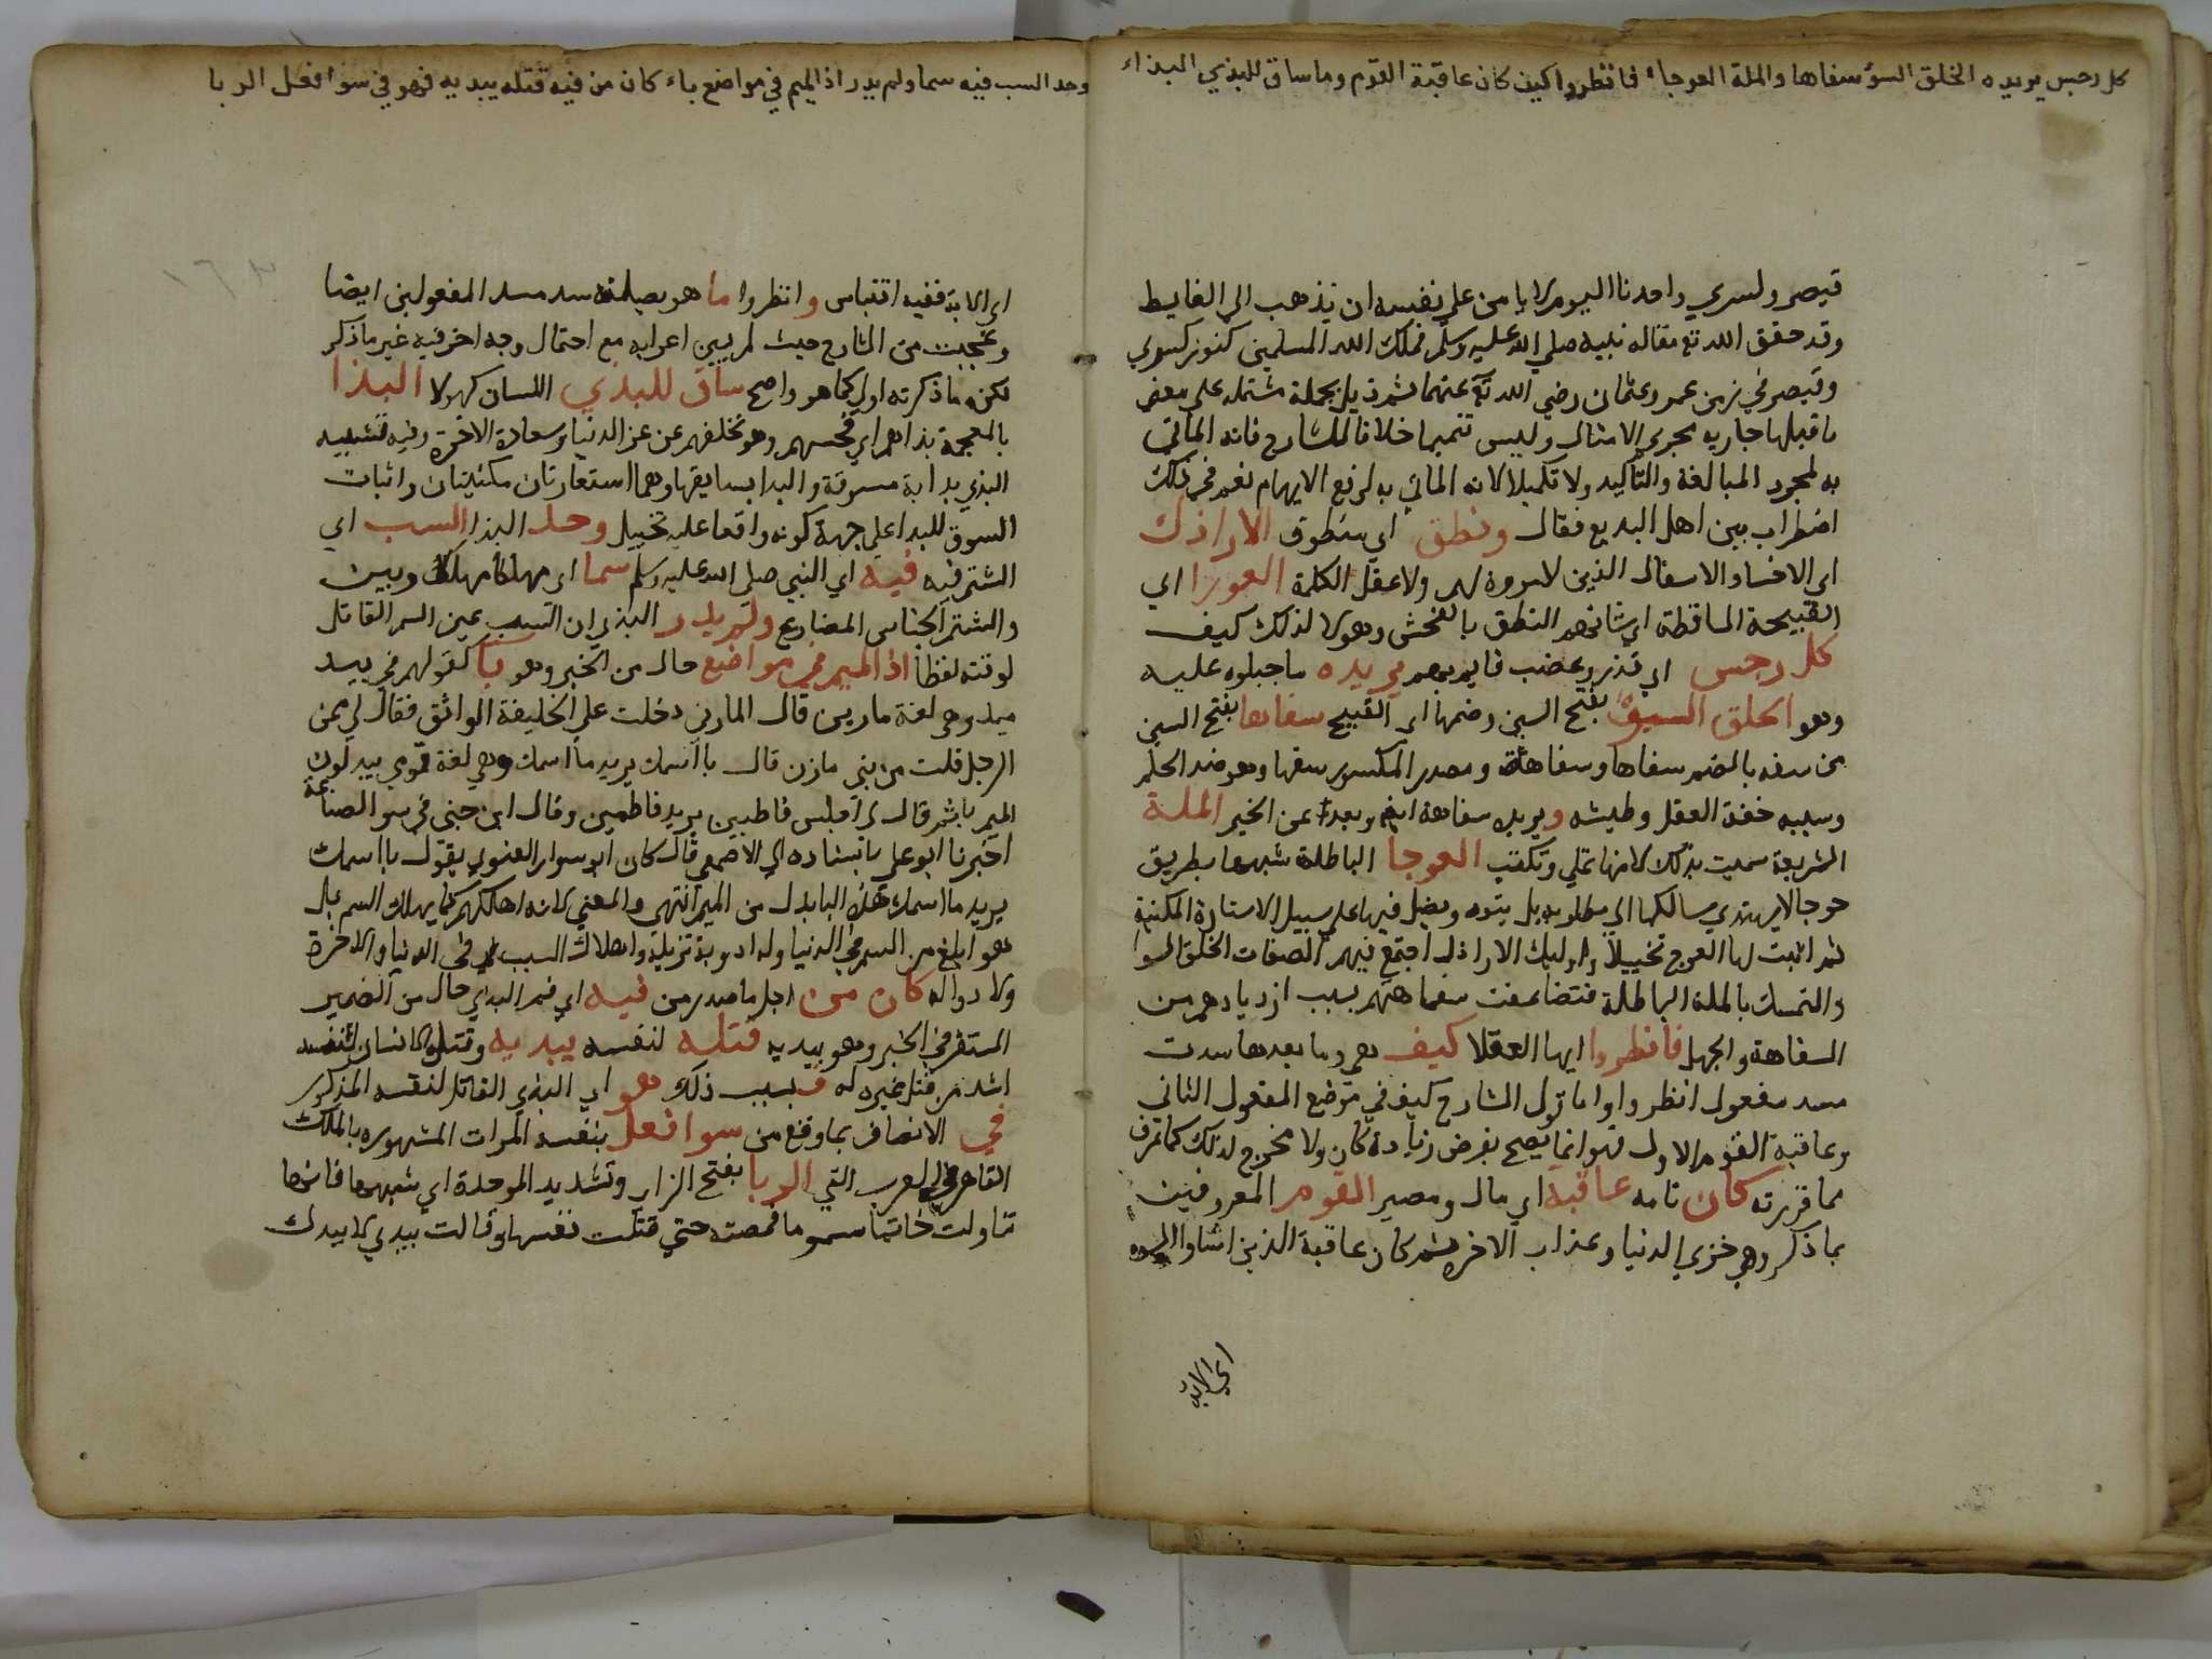 كل رجس يريده الخلق السوء سفاها والملة العوجاء فانظروا كيف كان عاقبة القوم وما ساق للبذي البذاء
قيصر وكسري واحدنا اليوم لا يامن علي نفسه ان يذهب الي الغايط
وقد حقق الله تع مقاله نبيه صلي الله عليه وسلم فملك الله المسلمين كنوز كسري
وقيصر في زمن عمر وعثمان رضي الله تع عنهما ثم ذيل بجملة مشتمله علي معني
ما قبلها جاريه مجري الامثال وليس تتميما خلافا للشارح فانه الماتي
به لمجرد المبالغة والتاكيد ولا تكميلا لانه الماتي به لرفع الايهام نعم في ذلك
اضطراب بين اهل البديع فقال ونطق اي منطوق الاراذل
اي الاخساء والاسفال الذين لا مروة لهم ولا عقل الكلمة العورا اي
القبيحة الساقطة اي شانهم النطق بالفحش وهولا لذلك كيف
كل رجس اي قذر وغضب قايم بهم يريده ما جبلوا عليه
وهو الخلق السوء بفتح السين وضمها اي القبيح سفاها بفتح السين
من سفه بالضم سفاها وسفاهة ومصدر المكسور سفها وهو ضد الحلم
وسببه خفة العقل وطيشه ويريد سفاهة ايضا وبعدا عن الخير الملة
الشريعة سميت بذلك لانها تملي وتكتب العوجا الباطلة شبهها بطريق
عوجا لا يهتدي سالكها الي مطلوبه بل يتوه ويضل فيها علي سبيل الاستعارة المكنية
ثم اثبت لها العوج تخييلا واوليك الاراذل اجتمع فيهم الصفات الخلق السوا
والتمسك بالملة الباطلة فتضاعفت سفاهتهم بسبب ازديادهم من
السفاهة والجهل فانظروا ايها العقلا كيف هي وما بعدها سدت
مسد مفعول انظروا واما قول الشارح كيف في موضع المفعول الثاني
وعاقبة القوم الاول فهو انما يصح بفرض زيادة كان ولا مخرج لذلك كما تعرف
مما قررته كان تامه عاقبة اي مال ومصير القوم المعروفين
بما ذكر وهي خزي الدنيا وعذاب الاخرة ثم كان عاقبة الذين اساوا السوء
اي الاية
وحد السب فيه سما ولم يدر اذ الميم في مواضع باء كان من فيه قتله بيديه فهو في سوء افعل الربا
١٦٣
اي الاية ففيه اقتباس وانظروا ما هو بصلته سد مسد المفعولين ايضا
وعجبت من الشارح حيث لم يبين اعرابه مع احتمال وجه اخر فيه غير ما ذكر
لكن ما ذكرته اولي كما هو واضح ساق للبذي اللسان كهولا البذا
بالمعجمة بذاهم اي فحسهم وهو تخلفهم عن عز الدنيا وسعادة الاخرة وفيه تشبيه
البذي بدابة مسوقة والبذا بسايقها وهما استعارتان مكنيتان واثبات
السوق للبذا علي جهة كونه واقعا عليه تخييل وحد البذا السب اي
الشتم فيه اي النبي صلي الله عليه وسلم سما اي مهلكا وبين
والشتم الجناس المضارع ولم يدر البذي ان السب عين السم القاتل
لوقته لفظا اذ الميم في مواضع حال من الخبر وهو با كقولهم في بيد
ميد وهي لغة مازن قال المازني دخلت علي الخليفة الواثق فقال لي ممن
الرجل قلت من بني مازن قال با اسمك يريد ما اسمك وهي لغة قومي يبدلون
الميم با ثم قال لي اجلس فاطبين يريد فاطمين وقال ابن جني في سر الصناعة
اخبرنا ابو علي باسناده الي الاصمعي قال كان ابو سوار الغنوي يقول با اسمك
يريد ما اسمك فهذه البا بدل من الميم انتهي والمعني لانه اهلكهم كما يهلك السم بل
هو ابلغ من السم في الدنيا وله ادوية تزيله واهلاك السب في الدنيا والاخرة
ولا دوا له كان من اجل ما صدر من فيه اي فم البذي حال من الضمير
المستقر في الخبر وهو بيديه قتله لنفسه بيديه وقتل الانسان لنفسه
اشد من قتل غيره له فبسبب ذلك هو اي البذي القاتل لنفسه المذكور
في الاتصاف بما وقع من سوا فعل بنفسه المرات المشهوره بالملك
القاهر في العرب التي الربا بفتح الزاي وتشديد الموحدة اي شبهها فانها
تناولت خاتما مسموما فمصته حتي قتلت نفسها وقالت بيدي لا بيدك